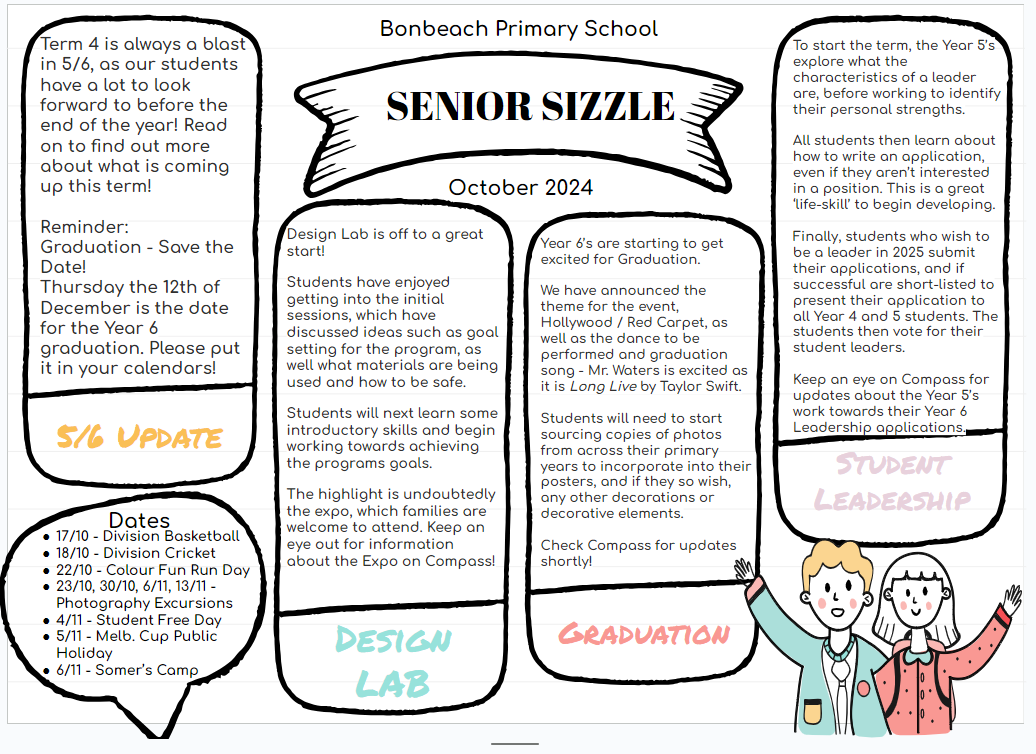 Bonbeach Primary School
SENIOR SIZZLE
October 2024
Term 4 is always a blast
in 5/6, as our students
have a lot to look
forward to before the
end of the year! Read
on to find out more
about what is coming
up this term!
Reminder:
Graduation - Save the
Date!
Thursday the 12th of
December is the date
for the Year 6
graduation. Please put
it in your calendars!
5/6 UPDATE
Dates
• 17/10 - Division Basketball
• 18/10 - Division Cricket
• 22/10 - Colour Fun Run Day
• 23/10, 30/10, 6/11, 13/11 -
Photography Excursions
• 4/11 - Student Free Day
• 5/11 - Melb. Cup Public
Holiday
• 6/11 - Somer's Camp
Design Lab is off to a great
start!
Students have enjoyed
getting into the initial
sessions, which have
discussed ideas such as goal
setting for the program, as
well what materials are being
used and how to be safe.
Students will next learn some
introductory skills and begin
working towards achieving
the programs goals.
The highlight is undoubtedly
the expo, which families are
welcome to attend. Keep an
eye out for information
about the Expo on Compass!
DESIGN
LAB
Year 6's are starting to get
excited for Graduation.
We have announced the
theme for the event,
Hollywood / Red Carpet, as
well as the dance to be
performed and graduation
song - Mr. Waters is excited as
it is Long Live by Taylor Swift.
Students will need to start
sourcing copies of photos
from across their primary
years to incorporate into their
posters, and if they so wish,
any other decorations or
decorative elements.
Check Compass for updates
shortly!
GRADUATION
To start the term, the Year 5's
explore what the
characteristics of a leader
are, before working to identify
their personal strengths.
All students then learn about
how to write an application,
even if they aren't interested
in a position. This is a great
'life-skill' to begin developing.
Finally, students who wish to
be a leader in 2025 submit
their applications, and if
successful are short-listed to
present their application to
all Year 4 and 5 students. The
students then vote for their
student leaders.
Keep an eye on Compass for
updates about the Year 5's
work towards their Year 6
Leadership applications.
STUDENT
LEADERSHIP